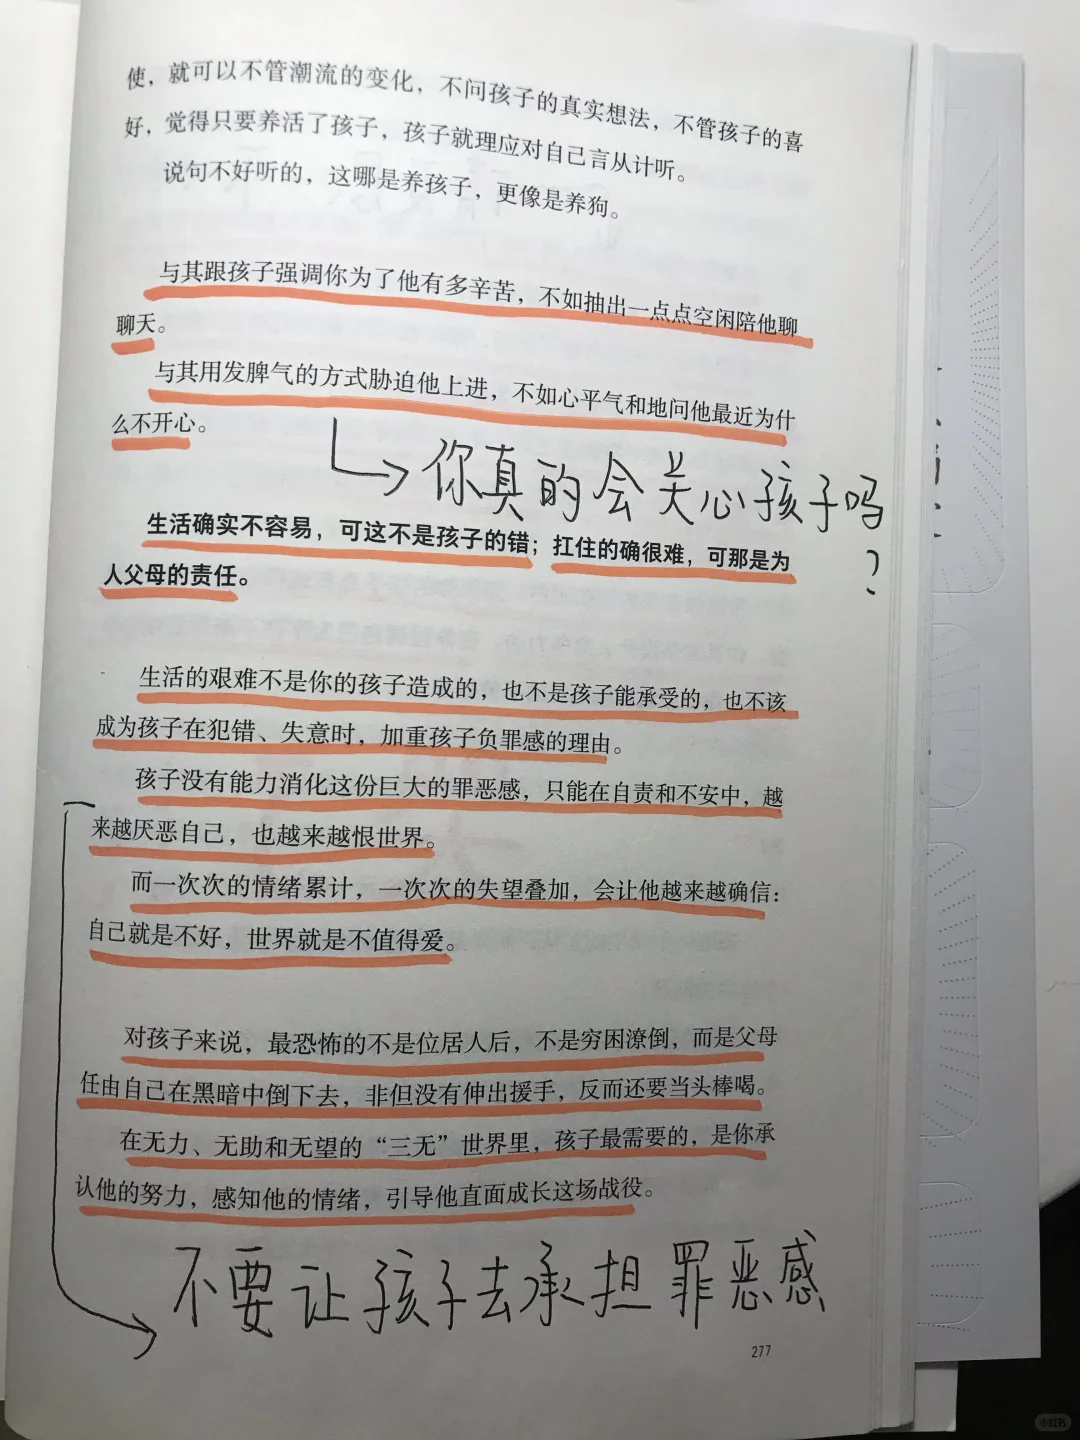 使，就可以不管潮流的变化，不问孩子的真实想法，不管孩子的喜
好，觉得只要养活了孩子，孩子就理应对自己言从计听。
说句不好听的，这哪是养孩子，更像是养狗。
与其跟孩子强调你为了他有多辛苦，不如抽出一点点空闲陪他聊
聊天。
与其用发脾气的方式胁迫他上进，不如心平气和地问他最近为什
么不开心。
你真的会关心孩子吗
？
生活确实不容易，可这不是孩子的错；扛住的确很难，可那是为
人父母的责任。
生活的艰难不是你的孩子造成的，也不是孩子能承受的，也不该
成为孩子在犯错、失意时，加重孩子负罪感的理由。
孩子没有能力消化这份巨大的罪恶感，只能在自责和不安中，越
来越厌恶自己，也越来越恨世界。
而一次次的情绪累计，一次次的失望叠加，会让他越来越确信：
自己就是不好，世界就是不值得爱。
对孩子来说，最恐怖的不是位居人后，不是穷困潦倒，而是父母
任由自己在黑暗中倒下去，非但没有伸出援手，反而还要当头棒喝。
在无力、无助和无望的“三无”世界里，孩子最需要的，是你承
认他的努力，感知他的情绪，引导他直面成长这场战役。
不要让孩子去承担罪恶感
277
小红书